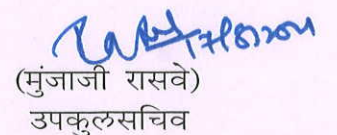 (मुंजाजी रासवे)
उपकुलसचिव